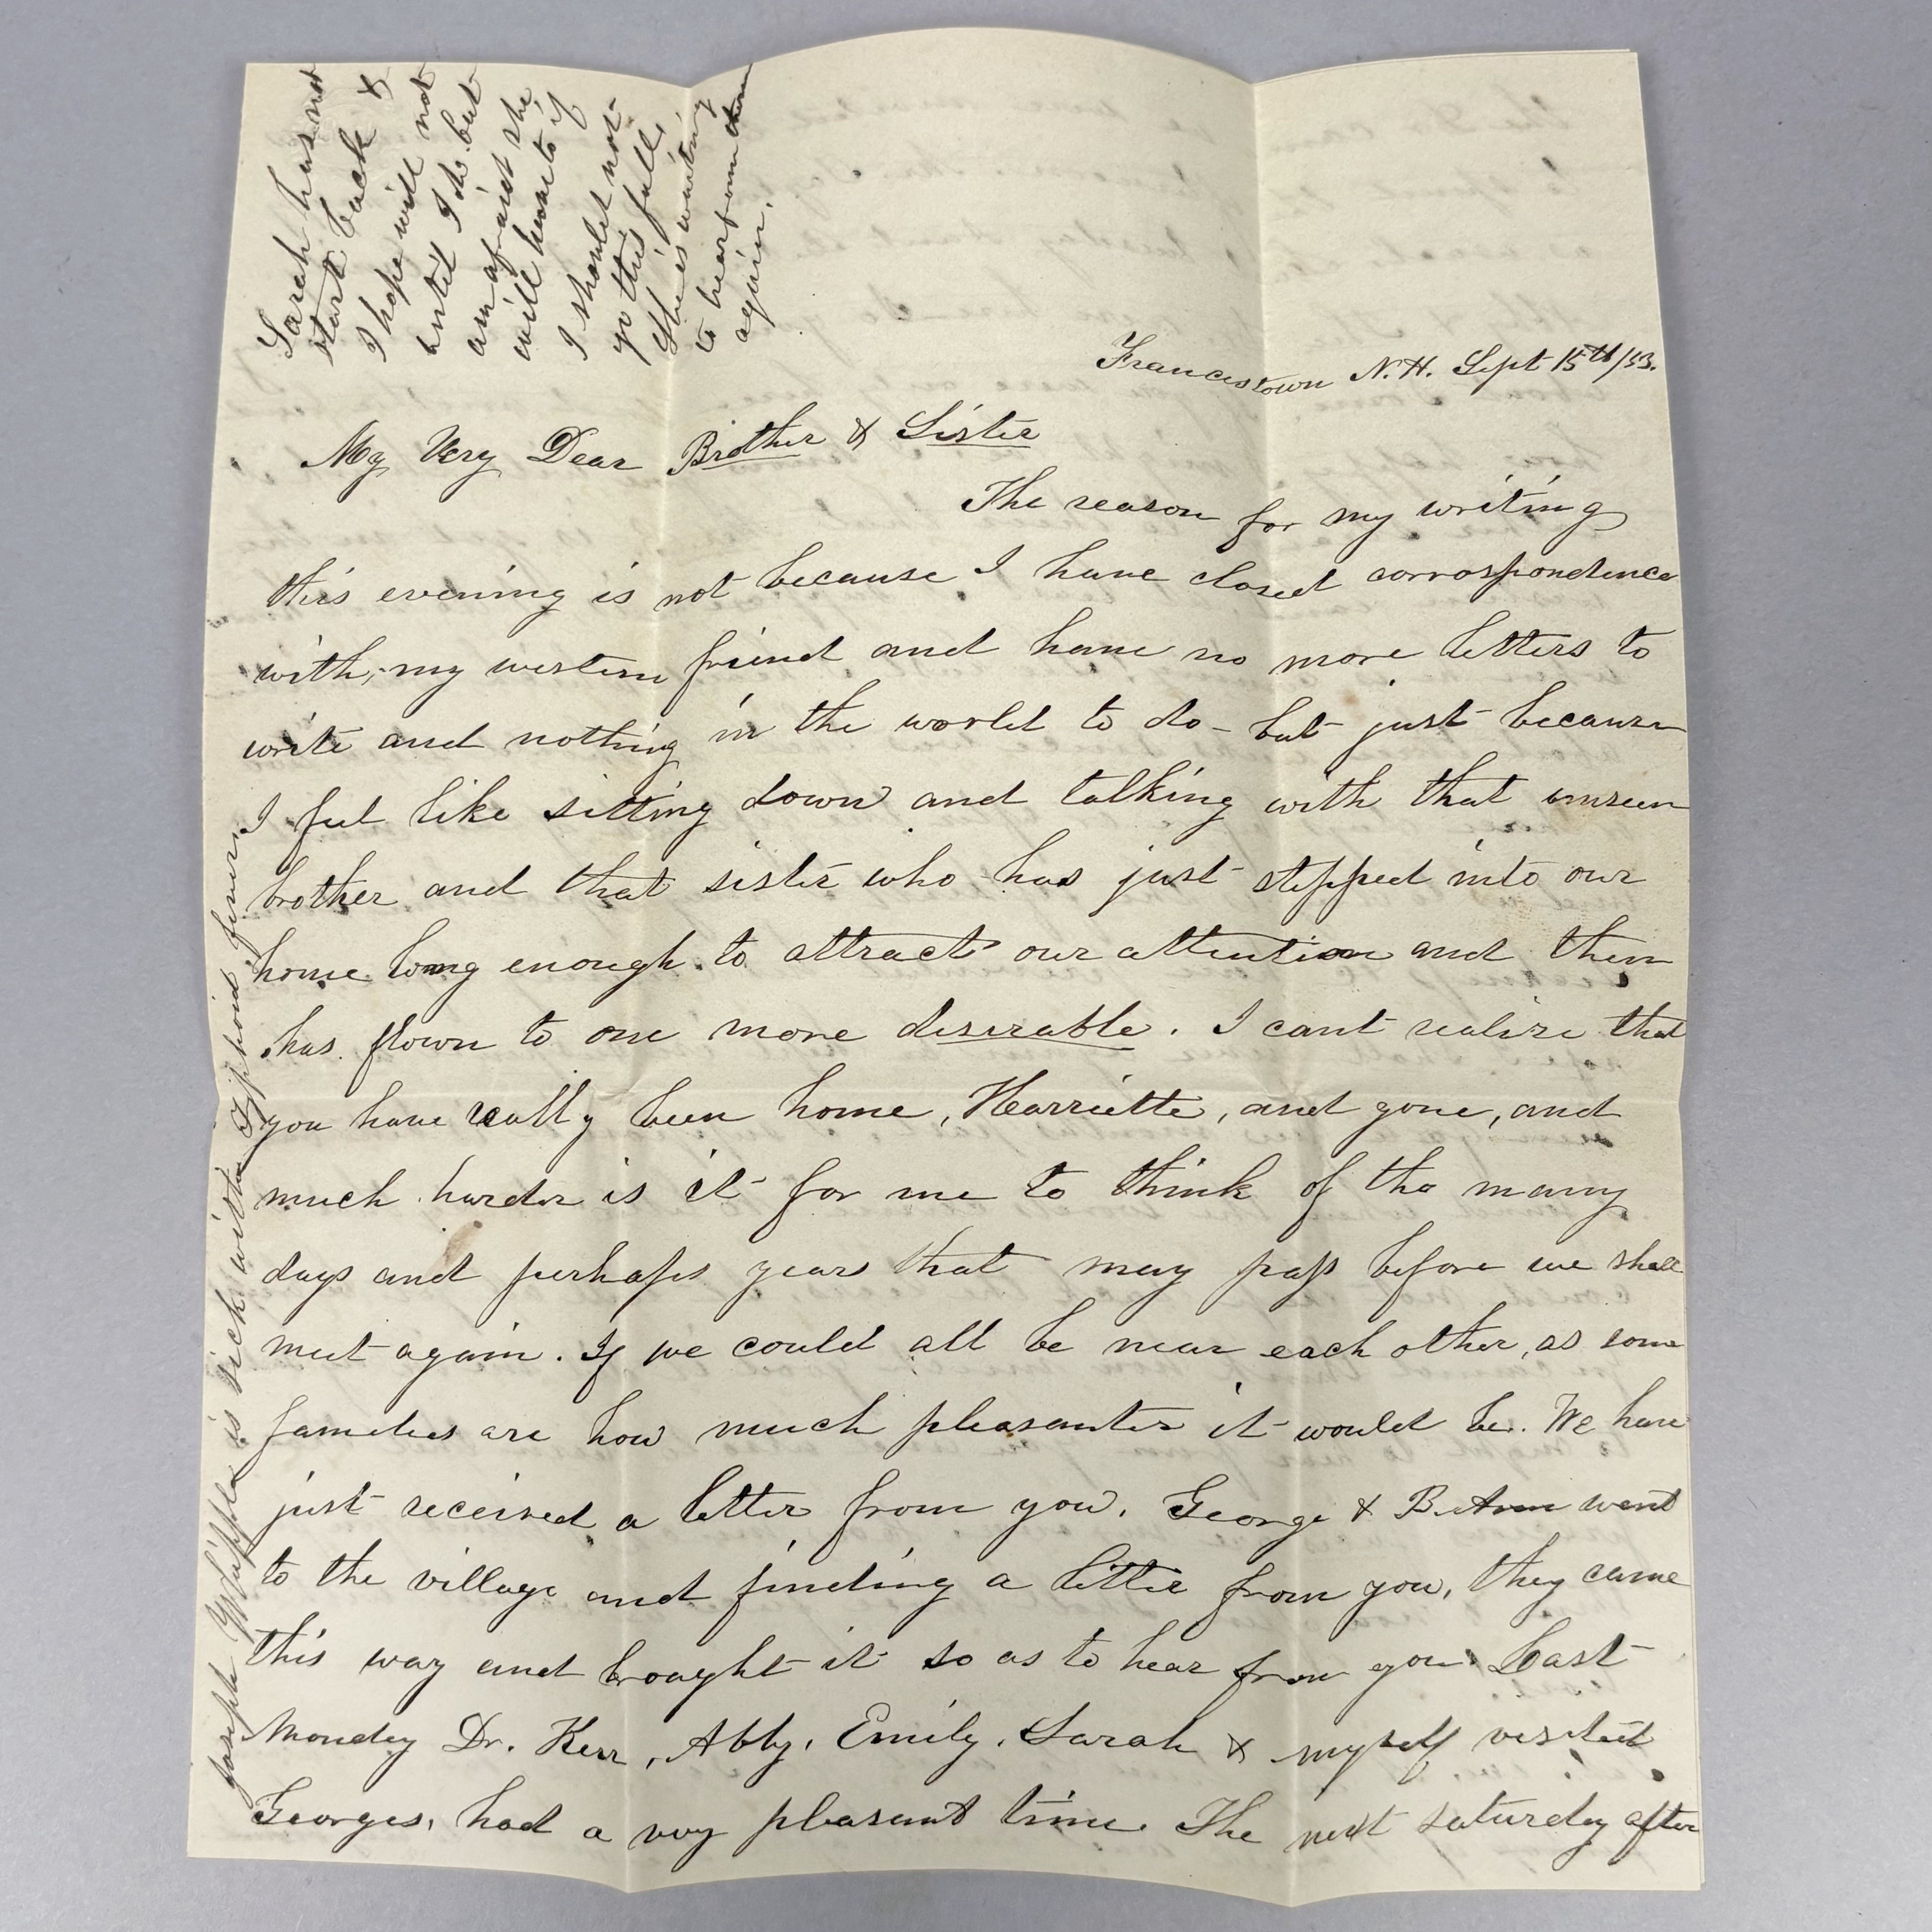 Sarah has not
start back &
I hope will not
until I do but
am afraid she
will have to if
I should not
go this fall,
She is waiting
to hear from them
again.
Francestown N.H. Sept 15th/53.
My Very Dear Brother & Sister
The reason for my writing
this evening is not because I have closed corrospondence
with my western friend and have no more letters to
write and nothing in the world to do - but just because
I feel like sitting down and talking with that unseen
brother and that sister who has just stepped into our
home long enough to attract our attention and then
has flown to one more desirable. I cant realize that
you have really been home, Harriette, and gone, and
much harder is it for me to think of the many
days and perhaps years that may pass before we shall
meet again. If we could all be near each other, as some
families are how much pleasanter it would be. We have
just received a letter from you. George & B. Ann went
to the village and finding a letter from you, they came
this way and brought it so as to hear from you. Last
Monday Dr. Kerr, Abby, Emily, Sarah & myself visited
Georges, had a very pleasant time. The next saturday after
Joseph Whipple is sick with Typhoid fever